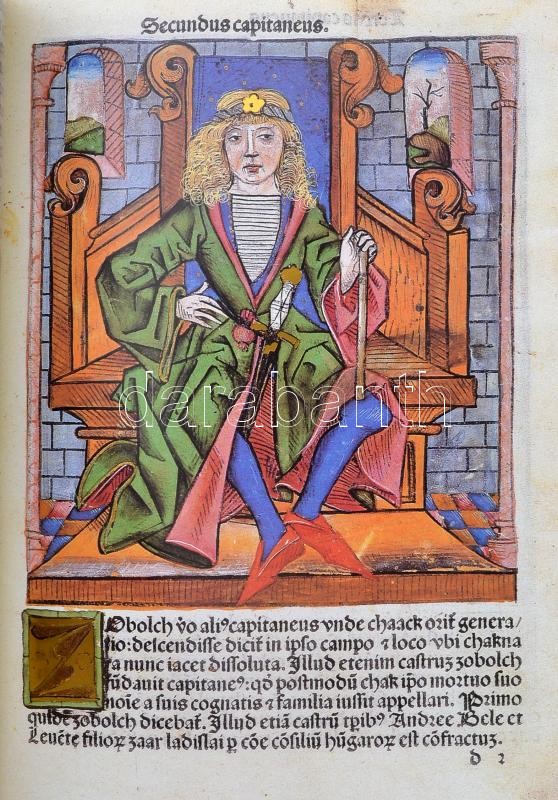 Secundus capitaneus.
darabanth
Zobolch v̄o aliꝰ capitaneus vnde chaack orit̃ genera/
tio: descendisse dicit̃ in ipso campo ⁊ loco vbi chakna
ra nunc iacet dissoluta. Illud etenim castruꝫ zobolch
fūdauit capitaneꝰ: qđ postmodū chak ip̄o mortuo suo
noīe a suis cognatis ⁊ familia iussit appellari. Primo
quidē zobolch dicebat̃. Illud etiā castrū tꝑibꝰ Andree Bele et
Leuēte filioꝝ zaar ladislai ꝑ cōe cōsiliū hūgaroꝝ est cōfractuꝫ.
d 2